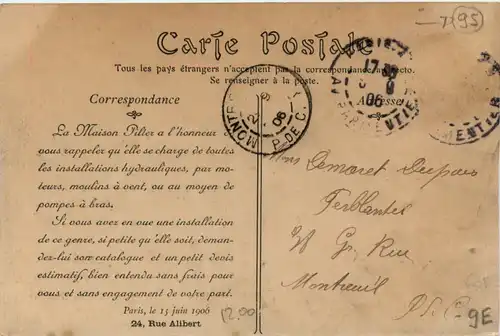 7 (95)
Carte Postale
Tous les pays étrangers n'acceptent pas la correspondance au recto.
Se renseigner à la poste.
Correspondance
Adresse
La Maison Pilter a l'honneur de
vous rappeler qu'elle se charge de toutes
les installations hydrauliques, par mo-
teurs, moulins à vent, ou au moyen de
pompes à bras.
Si vous avez en vue une installation
de ce genre, si petite qu'elle soit, deman-
dez-lui son catalogue et un petit devis
estimatif, bien entendu sans frais pour
vous et sans engagement de votre part.
Paris, le 15 juin 1906
24, Rue Alibert
P. DE C.
06
17
06
PARMENTIER
MENTIER
Mons
Ferblantier
Gr. Rue
Montreuil
P. d. C.
1200
9E